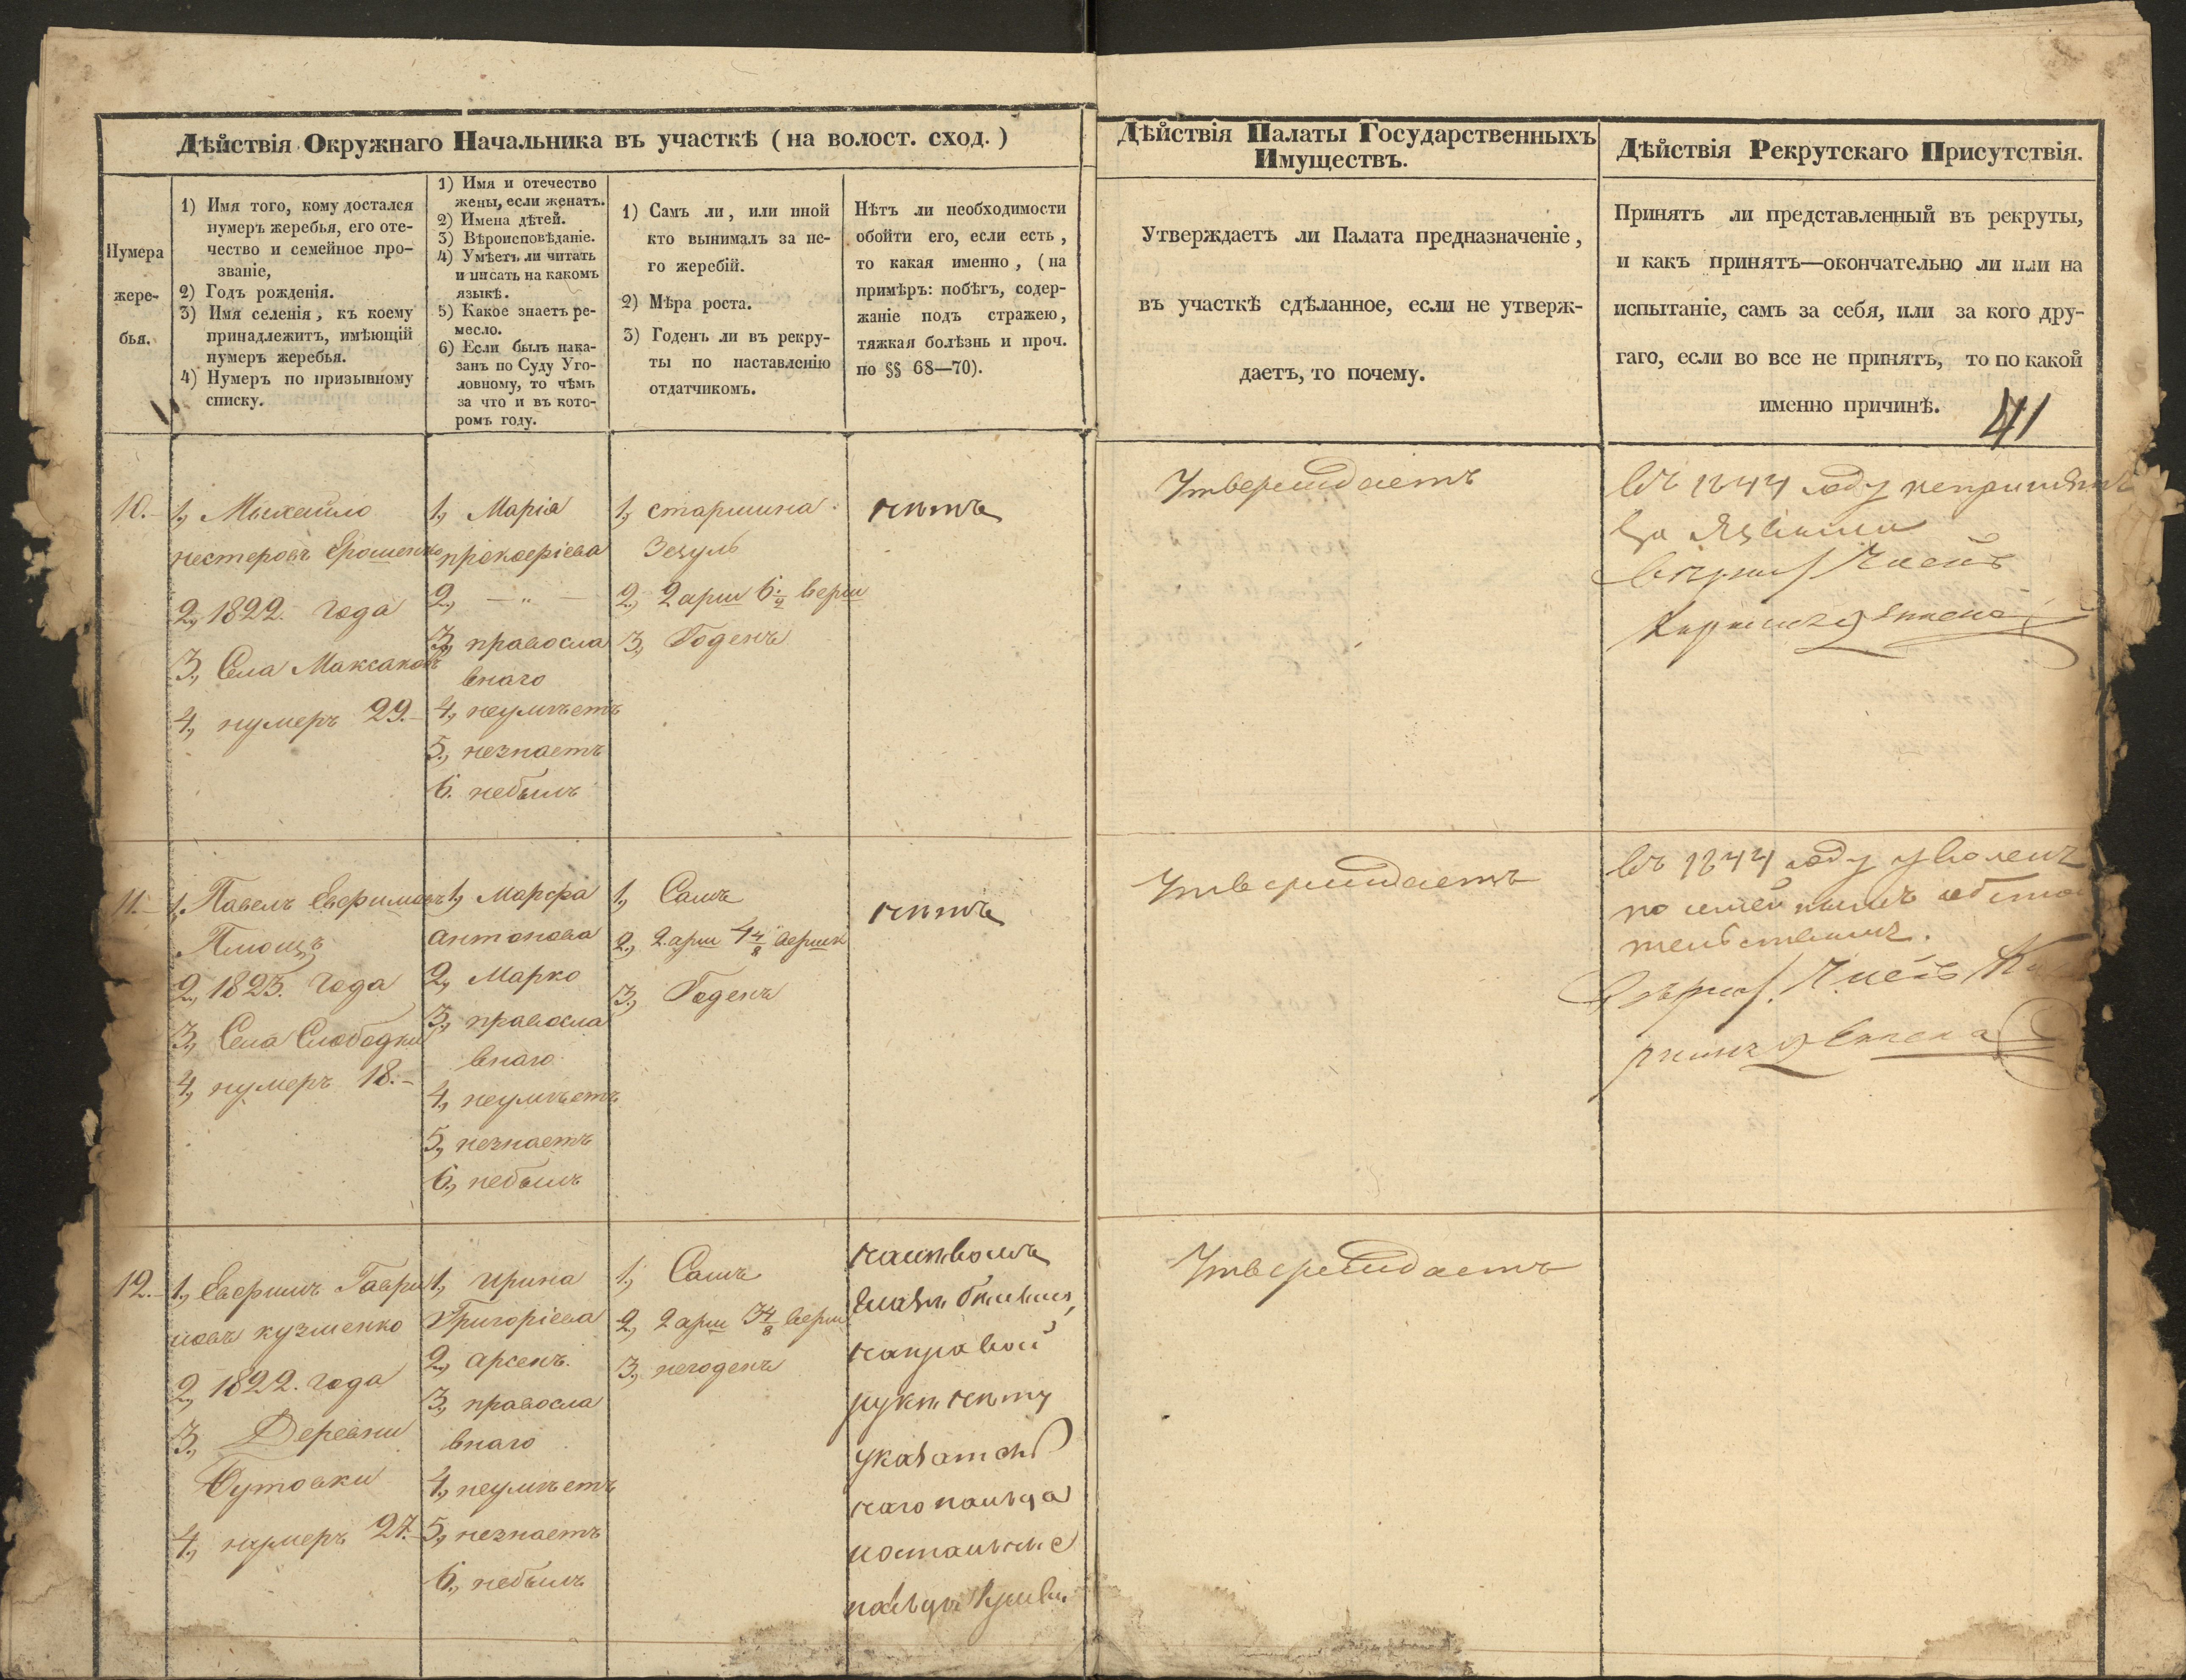 Дѣйствія Окружнаго Начальника въ участкѣ (на волост. сход.)
Дѣйствія Палаты Государственныхъ
Имуществъ.
Дѣйствія Рекрутскаго Присутствія.
Нумера
жере-
бья.
1) Имя того, кому достался
нумеръ жеребья, его оте-
чество и семейное про-
званіе,
2) Годъ рожденія.
3) Имя селенія, къ коему
принадлежитъ, имѣющій
нумеръ жеребья.
4) Нумеръ по призывному
списку.
1) Имя и отечество
жены, если женатъ.
2) Имена дѣтей.
3) Вѣроисповѣданіе.
4) Умѣетъ ли читать
и писать на какомъ
языкѣ.
5) Какое знаетъ ре-
месло.
6) Если былъ нака-
занъ по Суду Уго-
ловному, то чѣмъ
за что и въ кото-
ромъ году.
1) Самъ ли, или иной
кто вынималъ за не-
го жеребій.
2) Мѣра роста.
3) Годенъ ли въ рекру-
ты по наставленію
отдатчикомъ.
Нѣтъ ли необходимости
обойти его, если есть,
то какая именно, (на
примѣръ: побѣгъ, содер-
жаніе подъ стражею,
тяжкая болѣзнь и проч.
по §§ 68—70).
Утверждаетъ ли Палата предназначеніе,
въ участкѣ сдѣланное, если не утверж-
даетъ, то почему.
Принятъ ли представленный въ рекруты,
и какъ принятъ—окончательно ли или на
испытаніе, самъ за себя, или за кого дру-
гаго, если во все не принятъ, то по какой
именно причинѣ.
41
10.
1, Михайло
нестеровъ Ерошенко
2, 1822. года
3, Села Максаковъ
4, нумеръ 29.
1, Марія
прокофіева
2, — „ —
3, правосла
внаго
4, неумѣетъ
5, незнаетъ
6. небылъ
1, старшина
Зезуль
2, 2 арш 6 1/2 верш
3, Годенъ
нѣтъ
Утверждаетъ
Въ 1844 году непринятъ
за
11.
1, Павелъ Евфимовъ
Плющъ
2, 1823. года
3, Села Слободки
4, нумеръ 18.
1, Марфа
антонова
2, Марко
3, правосла
внаго
4, неумѣетъ
5, незнаетъ
6, небылъ
1, Самъ
2, 2 арш 4 4/8 вершк
3, Годенъ
нѣтъ
Утверждаетъ
Въ 1844 году уволенъ
по семейнымъ обстоя
тельствамъ.
12.
1, Евфимъ Гаври
ловъ кузменко
2, 1822. года
3, Деревни
Бутовки
4, нумеръ 27.
1, ирина
Григоріева
2, арсенъ.
3, правосла
внаго
4, неумѣетъ
5, незнаетъ
6, небылъ
1, Самъ
2, 2 арш 3 4/8 верш
3, негоденъ
налѣвомъ
глазѣ бѣльмо,
направой
рукѣ нѣту
указатель
наго пальца